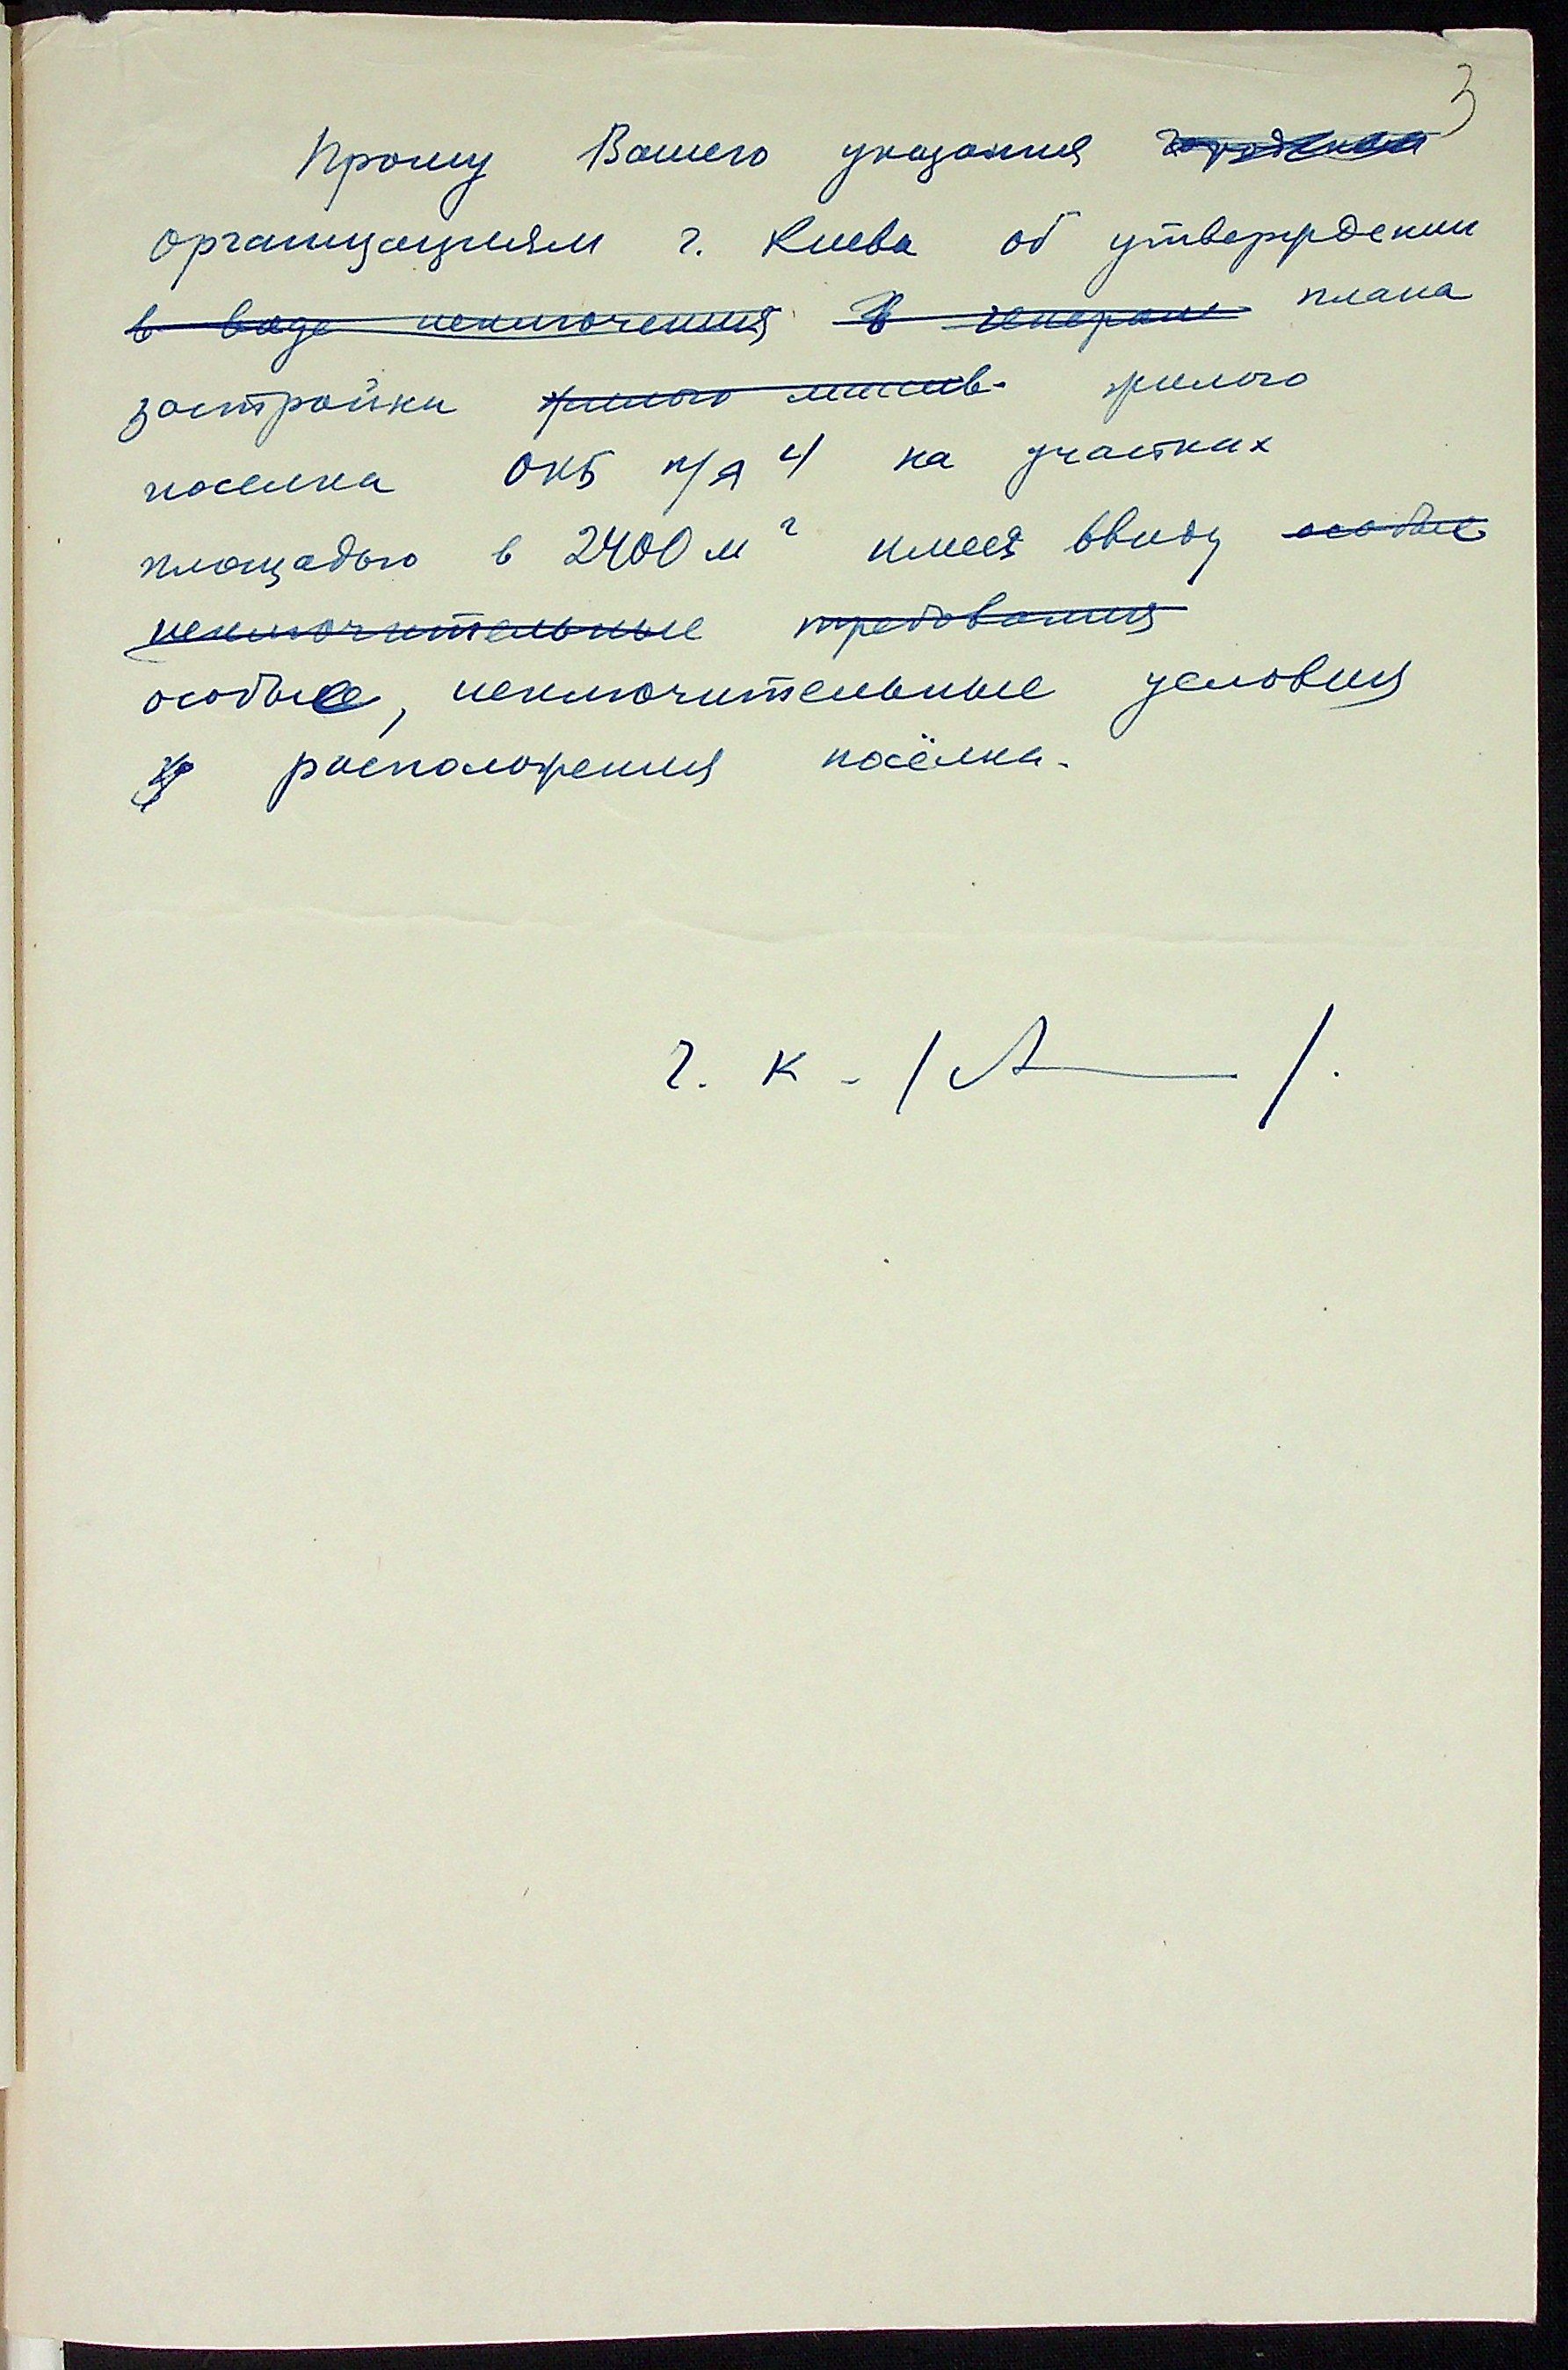 3
Прошу Вашего указания
организациям г. Киева об утверждении
в виде исключения в генерале плана
застройки жилого массив. жилого
поселка ОКБ п/я 4 на участках
площадью в 2400 м² имея ввиду особые
исключительные требования
особые, исключительные условия
расположения посёлка.
г. к. /А /.